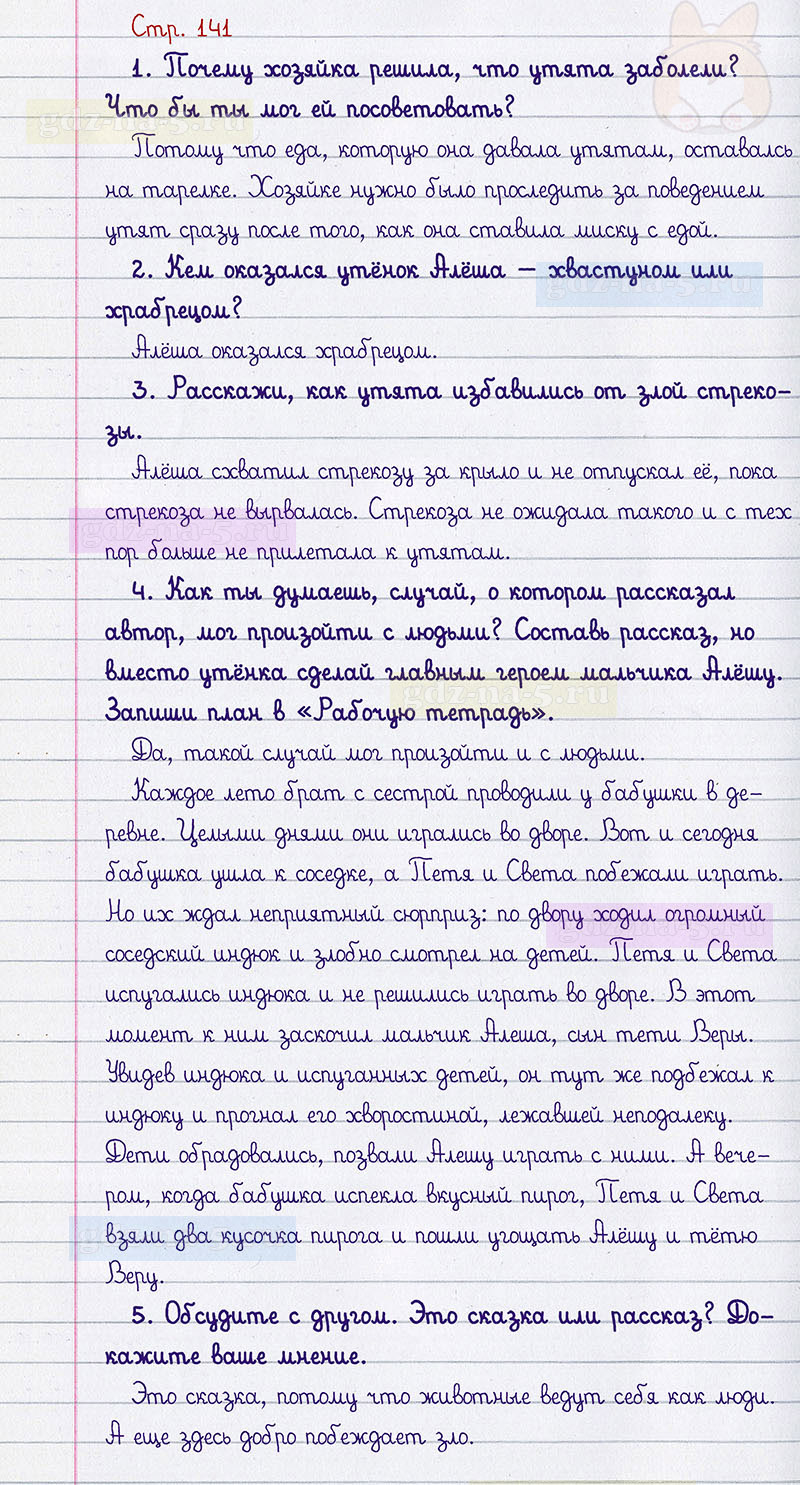 Стр. 141
1. Почему хозяйка решила, что утята заболели?
Что бы ты мог ей посоветовать?
gdz-na-5.ru
Потому что еда, которую она давала утятам, оставалсь
на тарелке. Хозяйке нужно было проследить за поведением
утят сразу после того, как она ставила миску с едой.
2. Кем оказался утёнок Алёша — хвастуном или
gdz-na-5.ru
храбрецом?
Алёша оказался храбрецом.
3. Расскажи, как утята избавились от злой стреко-
зы.
Алёша схватил стрекозу за крыло и не отпускал её, пока
стрекоза не вырвалась. Стрекоза не ожидала такого и с тех
gdz-na-5.ru
пор больше не прилетала к утятам.
4. Как ты думаешь, случай, о котором рассказал
автор, мог произойти с людьми? Составь рассказ, но
вместо утёнка сделай главным героем мальчика Алёшу.
gdz-na-5.ru
Запиши план в «Рабочую тетрадь».
Да, такой случай мог произойти и с людьми.
Каждое лето брат с сестрой проводили у бабушки в де-
ревне. Целыми днями они игрались во дворе. Вот и сегодня
бабушка ушла к соседке, а Петя и Света побежали играть.
Но их ждал неприятный сюрприз: по двору ходил огромный
gdz-na-5.ru
соседский индюк и злобно смотрел на детей. Петя и Света
испугались индюка и не решились играть во дворе. В этот
момент к ним заскочил мальчик Алеша, сын тети Веры.
Увидев индюка и испуганных детей, он тут же подбежал к
индюку и прогнал его хворостиной, лежавшей неподалеку.
Дети обрадовались, позвали Алешу играть с ними. А вече-
ром, когда бабушка испекла вкусный пирог, Петя и Света
взяли два кусочка пирога и пошли угощать Алёшу и тётю
gdz-na-5.ru
Веру.
5. Обсудите с другом. Это сказка или рассказ? До-
кажите ваше мнение.
Это сказка, потому что животные ведут себя как люди.
А еще здесь добро побеждает зло.